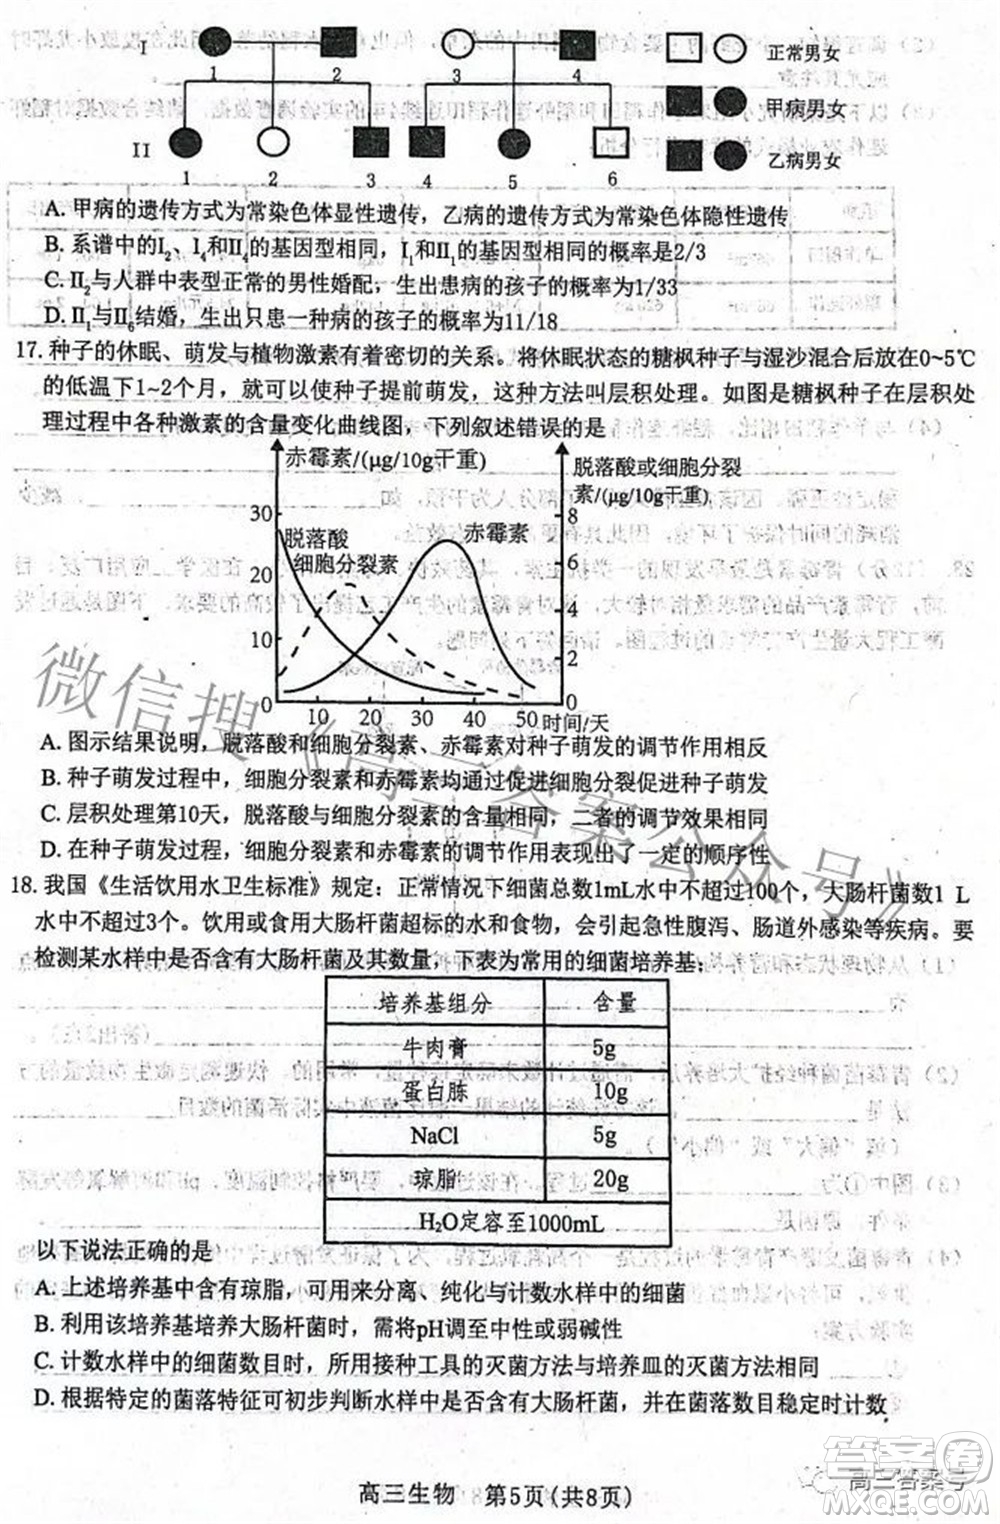 I
1
2
3
4
正常男女
甲病男女
乙病男女
II
1
2
3
4
5
6
A. 甲病的遗传方式为常染色体显性遗传，乙病的遗传方式为常染色体隐性遗传
B. 系谱中的I₂、I₄和II₄的基因型相同，I₁和II₁的基因型相同的概率是2/3
C. II₂与人群中表型正常的男性婚配，生出患病的孩子的概率为1/33
D. II₁与II₆结婚，生出只患一种病的孩子的概率为11/18
17. 种子的休眠、萌发与植物激素有着密切的关系。将休眠状态的糖枫种子与湿沙混合后放在0~5℃
的低温下1~2个月，就可以使种子提前萌发，这种方法叫层积处理。如图是糖枫种子在层积处
理过程中各种激素的含量变化曲线图，下列叙述错误的是
赤霉素/(μg/10g干重)
脱落酸或细胞分裂
素/(μg/10g干重)
30
20
10
0
8
6
4
2
0
脱落酸
细胞分裂素
赤霉素
10 20 30 40 50 时间/天
A. 图示结果说明，脱落酸和细胞分裂素、赤霉素对种子萌发的调节作用相反
B. 种子萌发过程中，细胞分裂素和赤霉素均能通过促进细胞分裂促进种子萌发
C. 层积处理第10天，脱落酸与细胞分裂素的含量相同，二者的调节效果相同
D. 在种子萌发过程中，细胞分裂素和赤霉素的调节作用表现出了一定的顺序性
18. 我国《生活饮用水卫生标准》规定：正常情况下细菌总数1mL水中不超过100个，大肠杆菌数1 L
水中不超过3个。饮用或食用大肠杆菌超标的水和食物，会引起急性腹泻、肠道外感染等疾病。要
检测某水样中是否含有大肠杆菌及其数量，下表为常用的细菌培养基：
培养基组分 含量
牛肉膏 5g
蛋白胨 10g
NaCl 5g
琼脂 20g
H₂O定容至1000mL
以下说法正确的是
A. 上述培养基中含有琼脂，可用来分离、纯化与计数水样中的细菌
B. 利用该培养基培养大肠杆菌时，需将pH调至中性或弱碱性
C. 计数水样中的细菌数目时，所用接种工具的灭菌方法与培养皿的灭菌方法相同
D. 根据特定的菌落特征可初步判断水样中是否含有大肠杆菌，并在菌落数目稳定时计数
高三生物 第5页(共8页)
微信搜《高三答案公众号》
高三答案号
答案圈
MXQE.COM